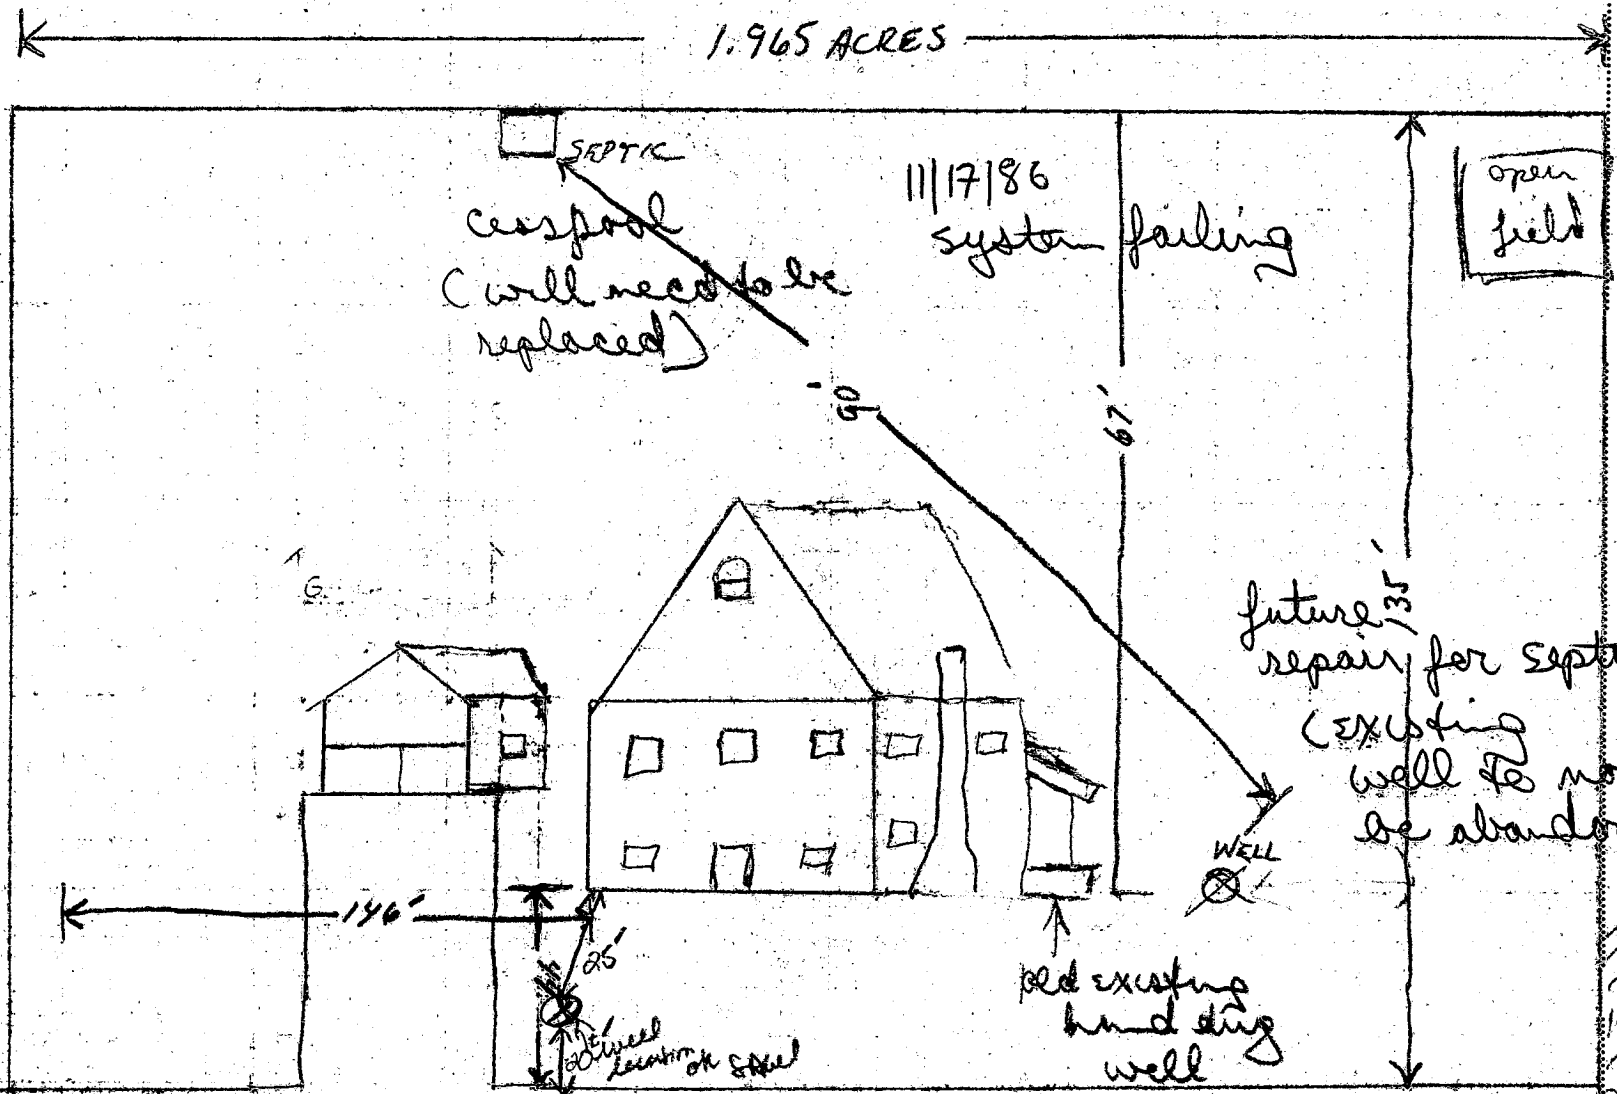 1.965 ACRES
SEPTIC
cesspool
(will need to be
replaced)
11/17/86
system failing
open
field
90'
67'
135'
G
future
repair for Sept
(existing
well to no
be abando
WELL
146'
25'
20'
well
location
OK
old existing
hand dug
well